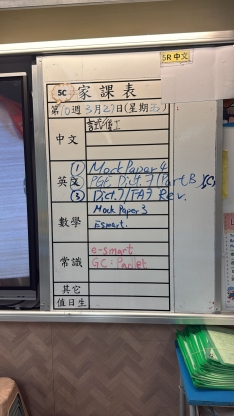 5R 中文
5C 家課表
第10週 3月27日(星期五)
中文
英文 ① Mock Paper 4
② PGE Dict.7 (Part B)(C)
③ Dict.7/TA3 Rev.
數學 Mock Paper 3
Esmart.
常識 e-smart
GC: Panlet
其它
值日生